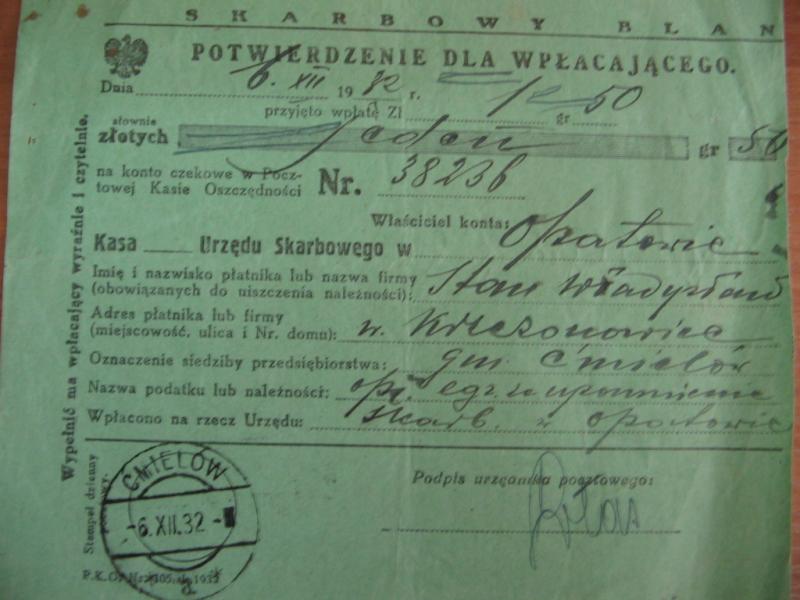 SKARBOWY BLAN
POTWIERDZENIE DLA WPŁACAJĄCEGO.
Dnia 6. XII 1932 r. 1 50
przyjęto wpłatę Zł gr
słownie
złotych jeden gr 50
na konto czekowe w Pocz-
towej Kasie Oszczędności Nr. 38236
Właściciel konta:
Kasa Urzędu Skarbowego w Opatowie
Imię i nazwisko płatnika lub nazwa firmy
(obowiązanych do uiszczenia należności): Stan Władysław
Adres płatnika lub firmy
(miejscowość, ulica i Nr. domu): w. Krzczonowice
Oznaczenie siedziby przedsiębiorstwa: gm Ćmielów
Nazwa podatku lub należności: egz. za upomnienie
Wpłacono na rzecz Urzędu: skarb. w Opatowie
Wypełnić ma wpłacający wyraźnie i czytelnie.
Stempel dzienny
pocztowy.
ĆMIELÓW
-6.XII.32
a
Podpis urzędnika pocztowego:
P.K.O. Nr.